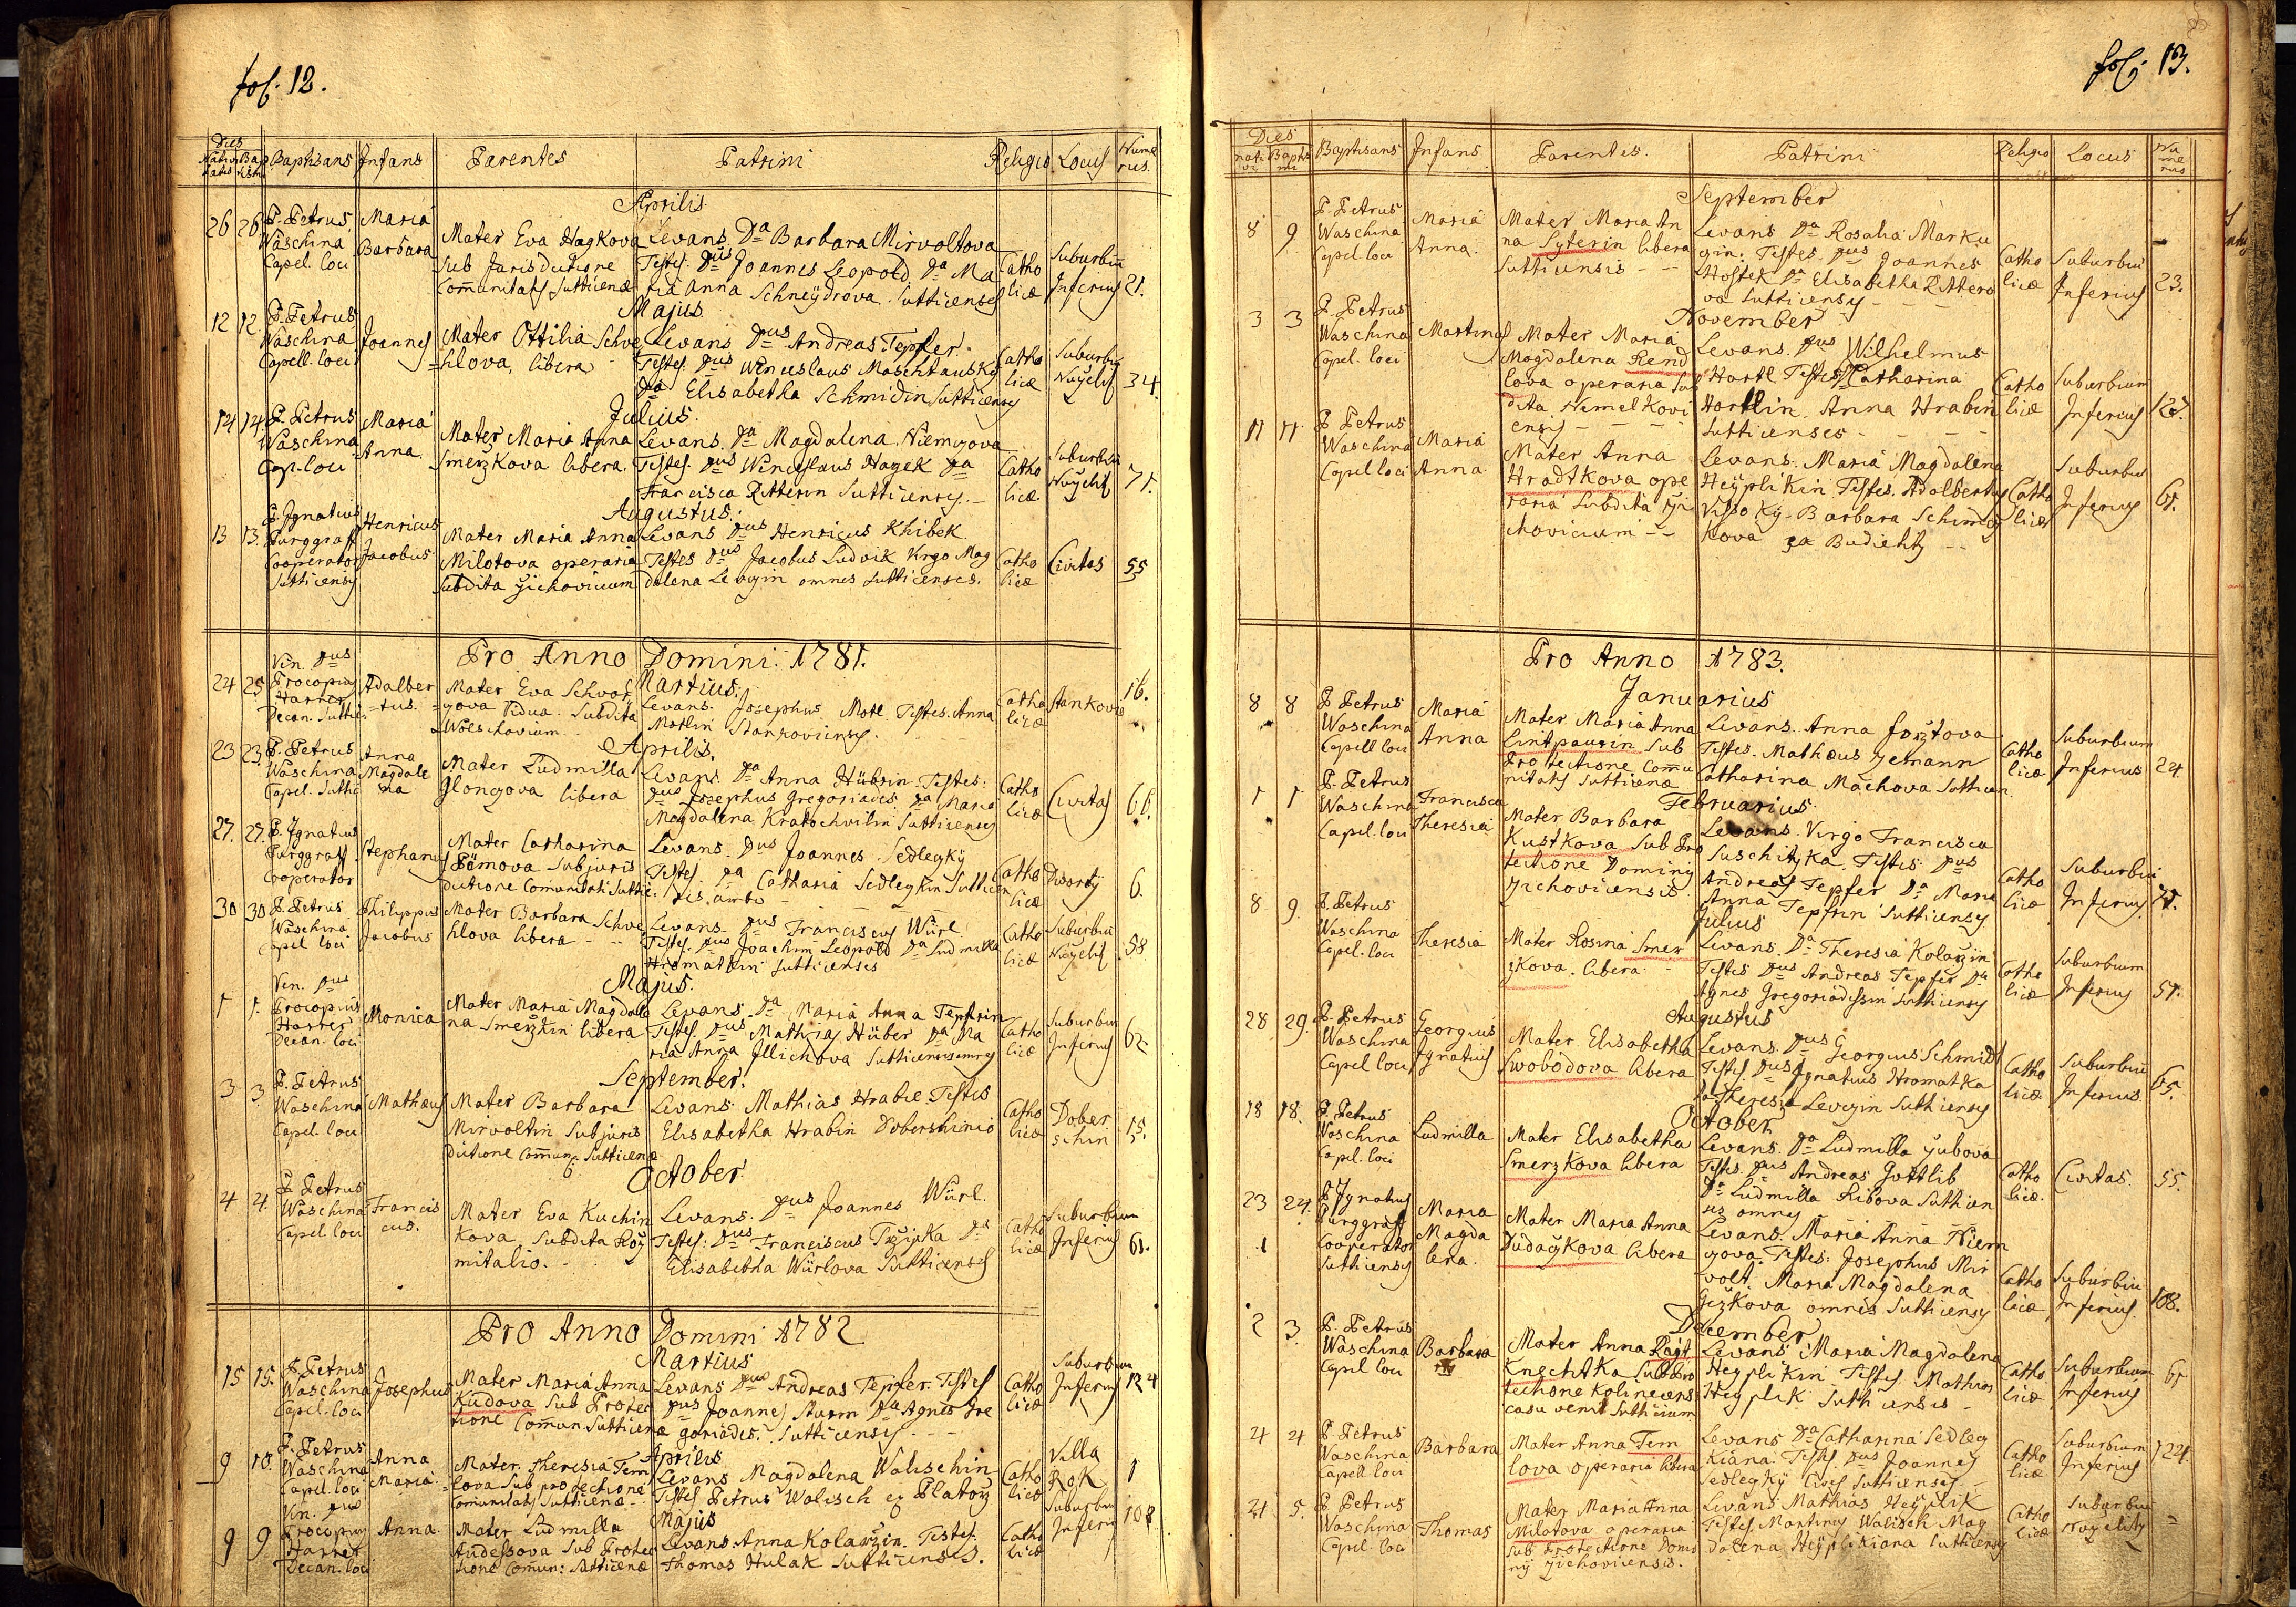 fol. 12.
Dies
Nativitatis Baptism. Baptisans Infans Parentes Patrini Religio Locus Numerus.
Aprilis
26 26 P. Petrus Waschina Capel. loci
Maria Barbara
Mater Eva Hagkova
sub Jurisdictione
Communitatis Sutticenæ
Levans. Da Barbara Mirvoltova
Testes. Dus Joannes Leopold. Da Ma
ria Anna Schneÿdrova. Sutticenses
Catho
licæ
Suburbiū
Inferius
21.
Majus
12 12. P. Petrus Waschina Capell. loci
Joannes
Mater Ottilia Schve
hlova, libera
Levans Dus Andreas Tepfer.
Testes. Dus Wenceslaus
Da Elisabetha Schmidin Sutticenses
Catho
licæ
Suburbiū
34.
Julius.
14 14. P. Petrus Waschina Cap. loci
Maria Anna.
Mater Maria Anna
Smerzkova libera.
Levans. Da Magdalena. Niemczova
Testes. Dus Wenceslaus Hagek Da
Francisca Ritterin Sutticenses.
Catho
licæ
Suburbiū
71.
Augustus.
13 13. P. Ignatius Purggraff Cooperator Sutticensis
Henricus Jacobus
Mater Maria Anna
Milotova operaria
subdita Zichovicum
Levans Dus Henricus Khibek
Testes Dus Jacobus Ludvik Virgo Mag
dalena Levczin omnes Sutticenses.
Catho
licæ
Civitas
55
Pro Anno Domini. 1781.
Martius.
24 25. Ven. Dus Procopius Harrer Decan. Suttic.
Adalber
tus.
Mater Eva
vidua. Subdita
Levans. Josephus Motl. Testes. Anna
Motlin
Catho
licæ
Stankovie
16.
Aprilis.
23 23. P. Petrus Waschina Capel. Suttic
Anna
Magdale
na
Mater Ludmilla
libera
Levans. Da Anna Hübrin. Testes.
Dus Josephus Gregoriades Da Maria
Magdalena Kratochvilin Sutticenses
Catho
licæ
Civitas
66.
27. 27. P. Ignatius Purggraff Cooperator
Stephanus
Mater Catharina
subjuris
dictione Comunitati Suttic.
Levans. Dus Joannes. Sedlegkÿ
Testes. Da Catharia Sedlegkin Sutticen
ses. ambo
Catho
licæ
6.
30 30 P. Petrus Waschina Capel loci
Philippus
Jacobus
Mater Barbara Schve
hlova libera
Levans Dus Franciscus Würl.
Testes. Dus Joachim Leopold Da Ludmila
Hromatkin Sutticenses
Catho
licæ
Suburbiū
58
Majus.
1 1. Ven. Dus Procopius Harrer Decan. loci
Monica
Mater Maria Magdale
na Smerzkin libera
Levans. Da Maria Anna Tepfrin
Testes. Dus Mathias Hüber Da Ma
ria Anna Illichova Sutticenses omnes
Catho
licæ
Suburbiū
Inferius
62
September.
3 3. P. Petrus Waschina Capel. loci
Mathæus
Mater Barbara
Mirvoltin subjuris
dictione Commun. Sutticenæ
Levans. Mathias Hrabie. Testis
Elisabetha Hrabin
Catho
licæ
Dober
schin
15.
October.
4 4. P. Petrus Waschina Capel loci
Francis
cus.
Mater Eva Kuchin
kova, subdita
mitalio.
Levans. Dus Joannes Würl.
Testes. Dus Franciscus Da
Elisabetha Würlova Sutticenses
Catho
licæ
Suburbium
Inferius
61.
Pro Anno Domini 1782
Martius
15 15. P. Petrus Waschina Capel. loci
Josephus
Mater Maria Anna
Kudova sub Protec
tione Commun. Sutticenæ
Levans Dus Andreas Tepfer. Testes
Dus Joannes Sturm Da Agnes Gre
goriades. Sutticensis.
Catho
licæ
Suburbium
Inferius
124
Aprilis
9 10. P. Petrus Waschina Capel. loci
Anna
Maria
Mater. Theresia Tem
lova sub protectione
Comunitatis Sutticenæ
Levans Magdalena Walischin
Testes Petrus Walisch ex Platorz
Catho
licæ
Villa
Rok
1
Majus
9 9. Ven. Dus Procopius Harrer Decan. loci
Anna.
Mater Ludmilla
Andessova sub Protec
tione Comun: Sutticenæ
Levans. Anna Kolarzin. Testes.
Thomas Hulak Sutticensis.
Catho
licæ
Suburbiū
Inferius
108
fol. 13.
Dies
nativi Baptismi Baptisans Infans Parentes. Patrini Religio Locus Numerus
September
8 9 P. Petrus Waschina Capel loci
Maria
Anna.
Mater Maria An
na Syterin libera
Sutticensis
Levans Da Rosalia Marku
gin. Testes Dus Joannes
Hostek Da Elisabetha Rittero
va Sutticenses
Catho
licæ
Suburbiū
Inferius
23.
November
3 3 P. Petrus Waschina Capel. loci
Martinus
Mater Maria
Magdalena Rend
lova operaria sub
dita Nemelkovi
ensis
Levans. Dus Wilhelmus
Hartl Testes Catharina
Hartlin. Anna Hrabin
Sutticenses
Catho
licæ
Suburbium
Inferius
11 11. P. Petrus Waschina Capel loci
Maria
Anna.
Mater Anna
Hradtkova ope
raria subdita Zi
chovicium
Levans. Maria Magdalena
Heÿplikin Testes. Adalbertus
Vissokÿ. Barbara
Catho
licæ
Suburbiū
Inferius
61.
Pro Anno 1783.
Januarius
8 8 P. Petrus Waschina Capell loci
Maria
Anna
Mater Maria Anna
Lintpaurin sub
Protectione Commu
nitatis Sutticenæ
Levans. Anna
Testes. Mathæus Zemann
Catharina Machova Sutticen.
Catho
licæ
Suburbium
Inferius
24
Februarius.
1 1 P. Petrus Waschina Capel. loci
Francisca
Theresia
Mater Barbara
Kustkova sub Pro
tectione Dominÿ
Zichovicensis
Levans. Virgo Francisca
Suschitzka. Testes Dus
Andreas Tepfer Da Maria
Anna Tepfrin Sutticenses
Catho
licæ
Suburbiū
Inferius
71.
Julius
8 9. P. Petrus Waschina Capel. loci
Theresia
Mater Rosina Smer
zkova. libera
Levans. Da Theresia Kolarzin
Testes Dus Andreas Tepfer Da
Agnes Gregoriadessin Sutticenses
Catho
licæ
Suburbium
Inferius
51.
Augustus
28 29. P. Petrus Waschina Capel loci
Georgius
Ignatius
Mater Elisabetha
Swobodova libera
Levans. Dus Georgius Schmidt
Testes Dus Ignatius Hromatka
Da Theresia Levczin Sutticenses
Catho
licæ
Suburbiū
Inferius
65.
October
18 18. P. Petrus Waschina Capel. loci
Ludmilla
Mater Elisabetha
Smerzkova libera
Levans. Da Ludmilla
Testes. Dus Andreas Gottlib
Da Ludmilla Ribova Sutticen
ses omnes
Catho
licæ.
Civitas.
55.
23 24. P. Ignatius Purggraff Cooperator Sutticensis
Maria
Magda
lena.
Mater Maria Anna
Dudaczkova libera
Levans. Maria Anna Niem
czova. Testes. Josephus Mir
volt. Maria Magdalena
omnes Sutticenses
Catho
licæ
Suburbiū
Inferius.
108.
December
2 3. P. Petrus Waschina Capel loci
Barbara
Mater Anna
sub Pro
tectione
casu venit Sutticium
Levans Maria Magdalena
Heÿplikin Testes. Mathias
Heÿplik Sutticensis
Catho
licæ
Suburbium
Inferius
61
4 4 P. Petrus Waschina Capell loci
Barbara
Mater Anna Tem
lova operaria libera
Levans Da Catharina Sedleg
kiana. Testes. Dus Joannes
Sedlegkÿ Cives Sutticenses
Catho
licæ
Suburbium
Inferius
124.
4 5. P. Petrus Waschina Capel. loci
Thomas
Mater Maria Anna
Milotova operaria
sub Protectione Domi
nÿ Zichovicensis.
Levans Mathias Heÿplik
Testes Martinus Walisch Mag
dalena Heÿplikiana Sutticenses
Catho
licæ
Suburbiū